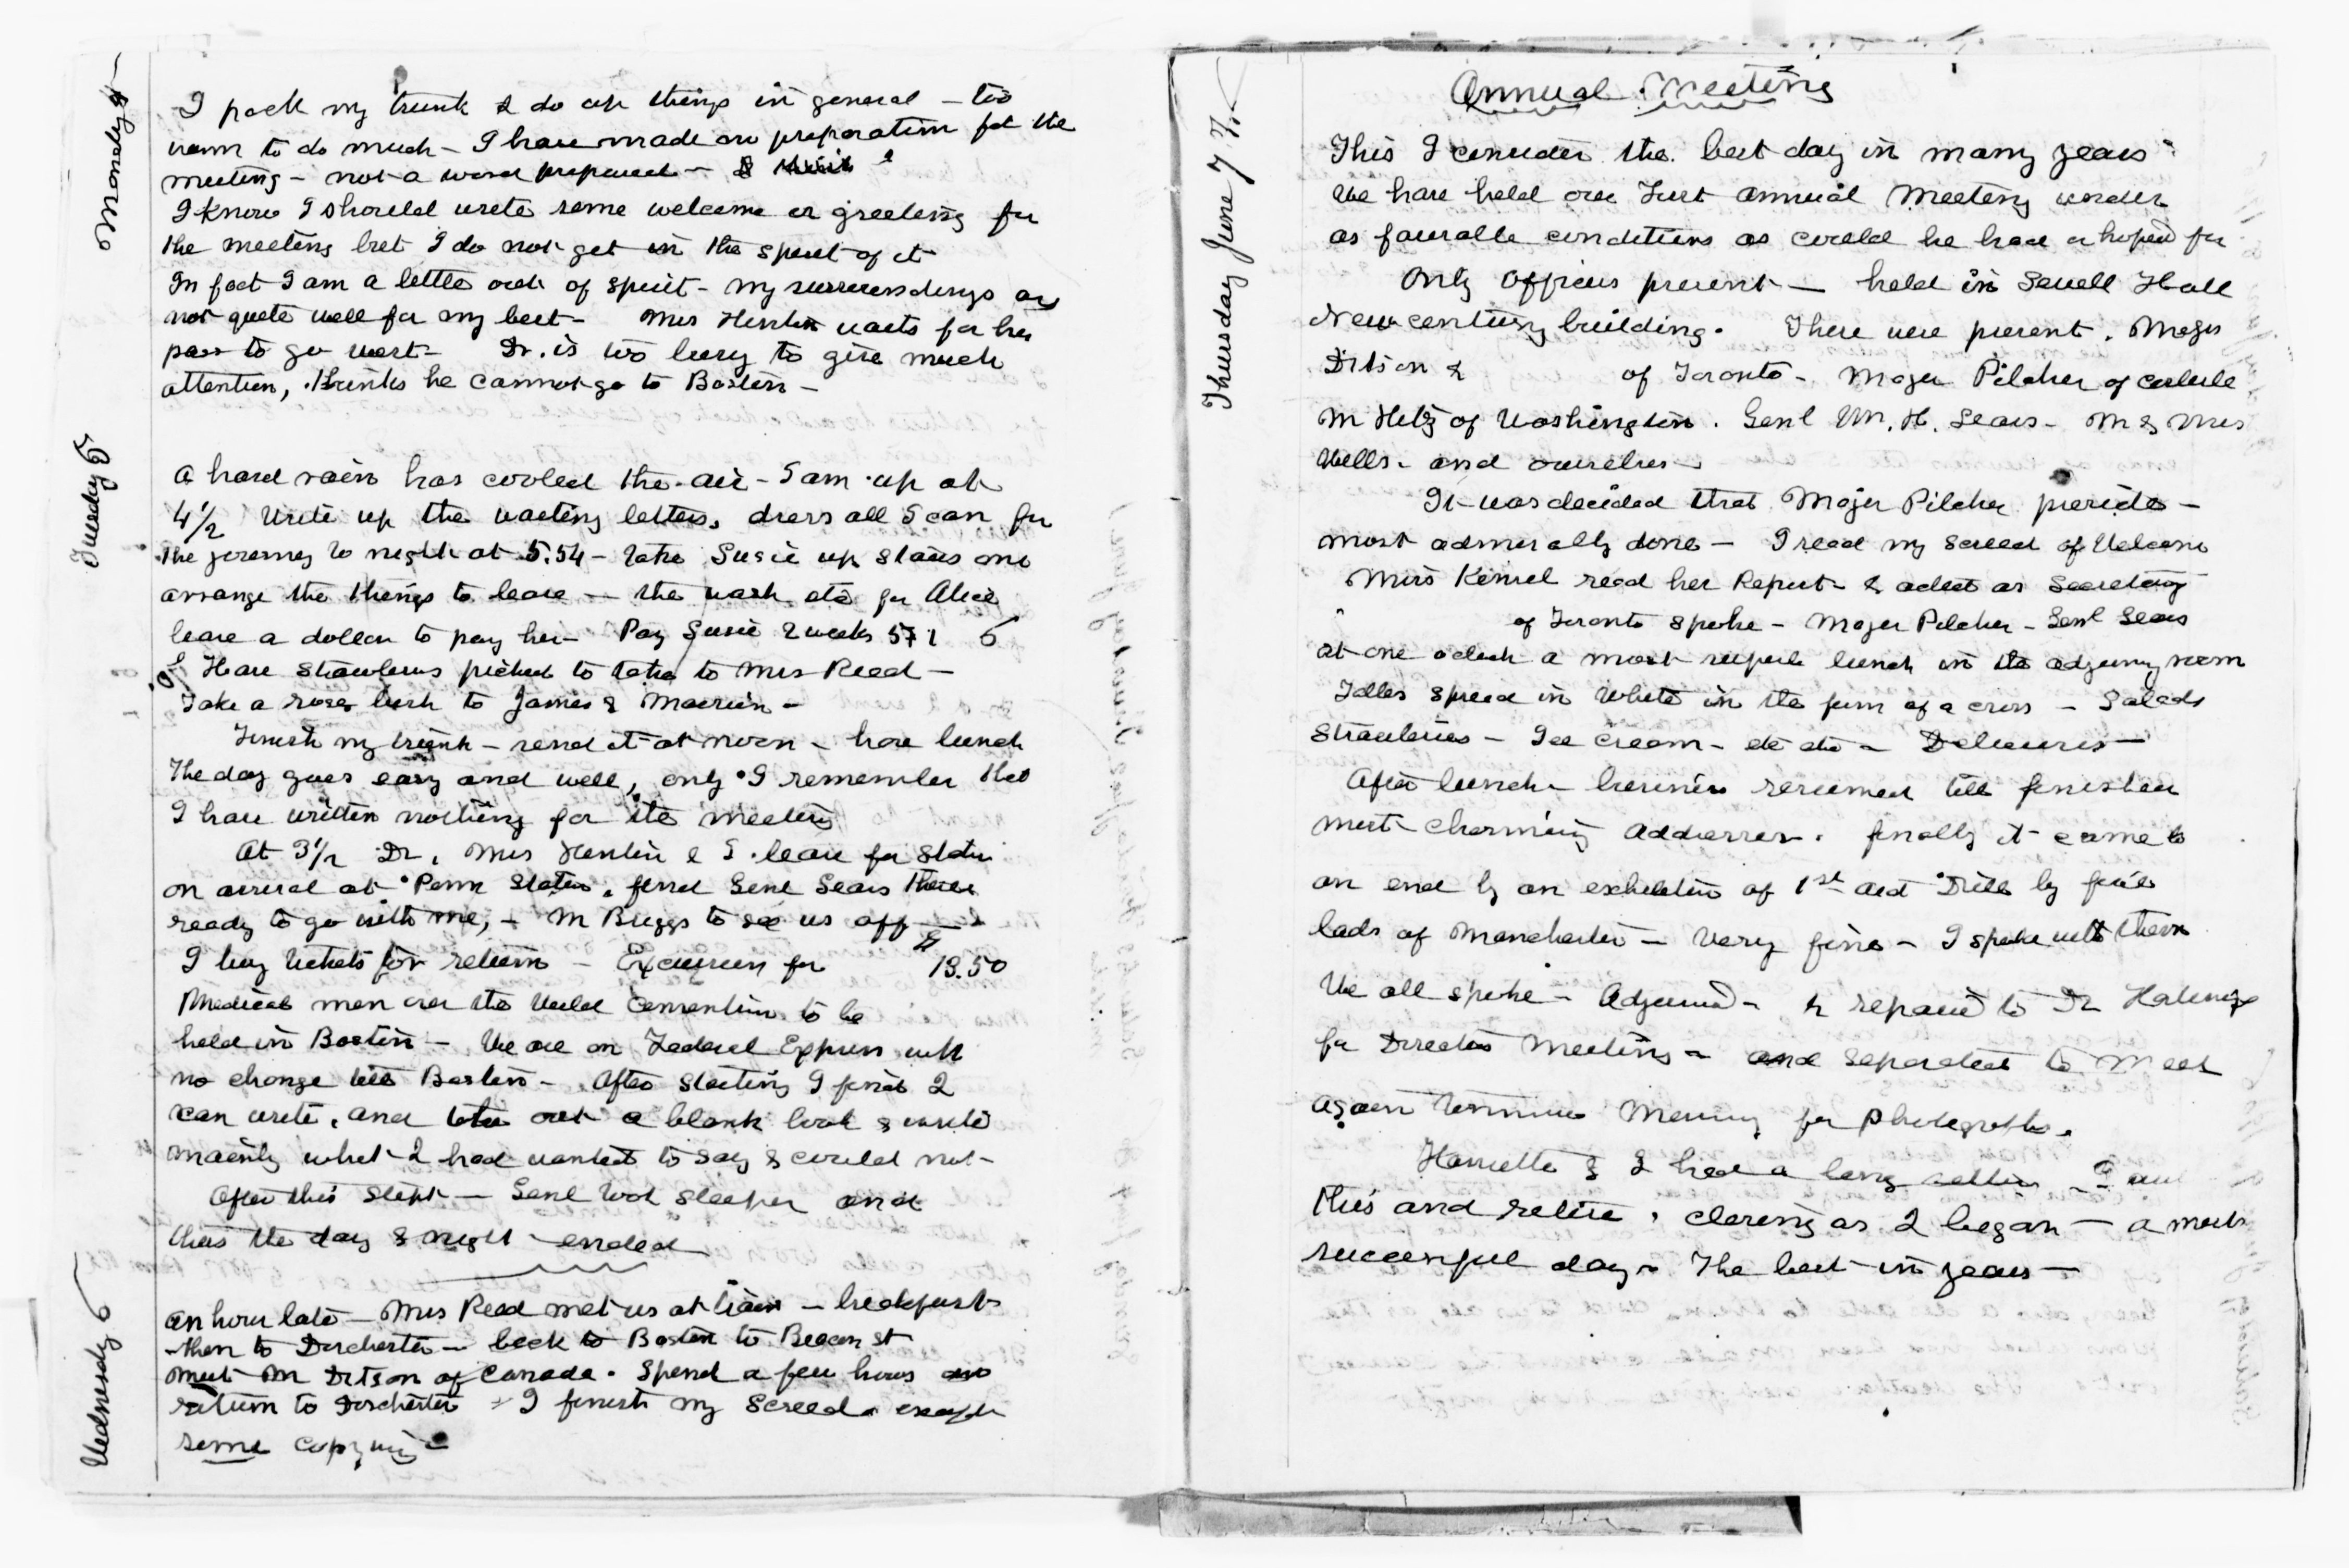 Monday 4
I pack my trunk & do up things in general - too
warm to do much - I have made no preparation for the
meeting - not a word prepared -
I know I should write some welcome or greeting for
the meeting but I do not get in the spirit of it
In fact I am a little out of spirit - my surroundings are
not quite well for my best - Mrs Hinton waits for her
pass to go west - Dr. is too busy to give much
attention, thinks he cannot go to Boston -
Tuesday 5
A hard rain has cooled the air - I am up at
4 1/2 Write up the waiting letters, dress all I can for
the journey to night at 5.54 - take Susie up stairs and
arrange the things to leave - the wash etc for Alice
leave a dollar to pay her - Pay Susie 2 weeks 5 + 1 6
Have strawberries picked to take to Mrs Read -
Take a rose bush to James & Marion -
Finish my trunk - send it at noon - have lunch
The day goes easy and well, only I remember that
I have written nothing for the meeting
At 3 1/2 Dr, Mrs Hinton & I leave for Station
on arrival at Penn Station, find Genl Sears there
ready to go with me, - Mr Briggs to see us off -
I buy tickets for return - Excursion for $ 13.50
Medical men over the World Convention to be
held in Boston - We are on Federal Express with
no change till Boston - After starting I find I
can write, and take out a blank book & write
mainly what I had wanted to say & could not -
After this slept - Genl took sleeper and
thus the day & night ended
Wednesday 6
an hour late - Mrs Read met us at train - breakfast
then to Dorchester - back to Boston to Beacon St
meet Mr Ditson of Canada. Spend a few hours and
return to Dorchester - I finish my Screed - except
some copying -
Thursday June 7
Annual Meeting
This I consider the best day in many years
We have held our First Annual Meeting under
as favorable conditions as could be had or hoped for
Only Officers present - held in Sewell Hall
New century building. There were present. Major
Ditson & of Toronto - Major Pilcher of Carlisle
Mr Hitz of Washington. Genl Wm. H. Sears - Mr & Mrs
Wells - and ourselves -
It was decided that Major Pilcher preside -
most admirably done - I read my screed of Welcome
Miss Kimel read her Report - & acted as Secretary
of Toronto spoke - Major Pilcher - Genl Sears
at one oclock a most superb lunch in the adjoining room
Tables spread in White in the form of a cross - Salads
Strawberries - Ice cream - etc etc - Delicious -
After lunch - business resumed till finished
most charming addresses. finally it came to
an end by an exhibition of 1st aid Drill by five
lads of Manchester - Very fine - I spoke with them
We all spoke - Adjourned - & repaired to Dr Hastings
for Directors Meeting - and separated to Meet
again tomorrow Morning for photographs.
Harriette & I had a long settin I am
this and retire, closing as I began - a most
successful day - The best in years -